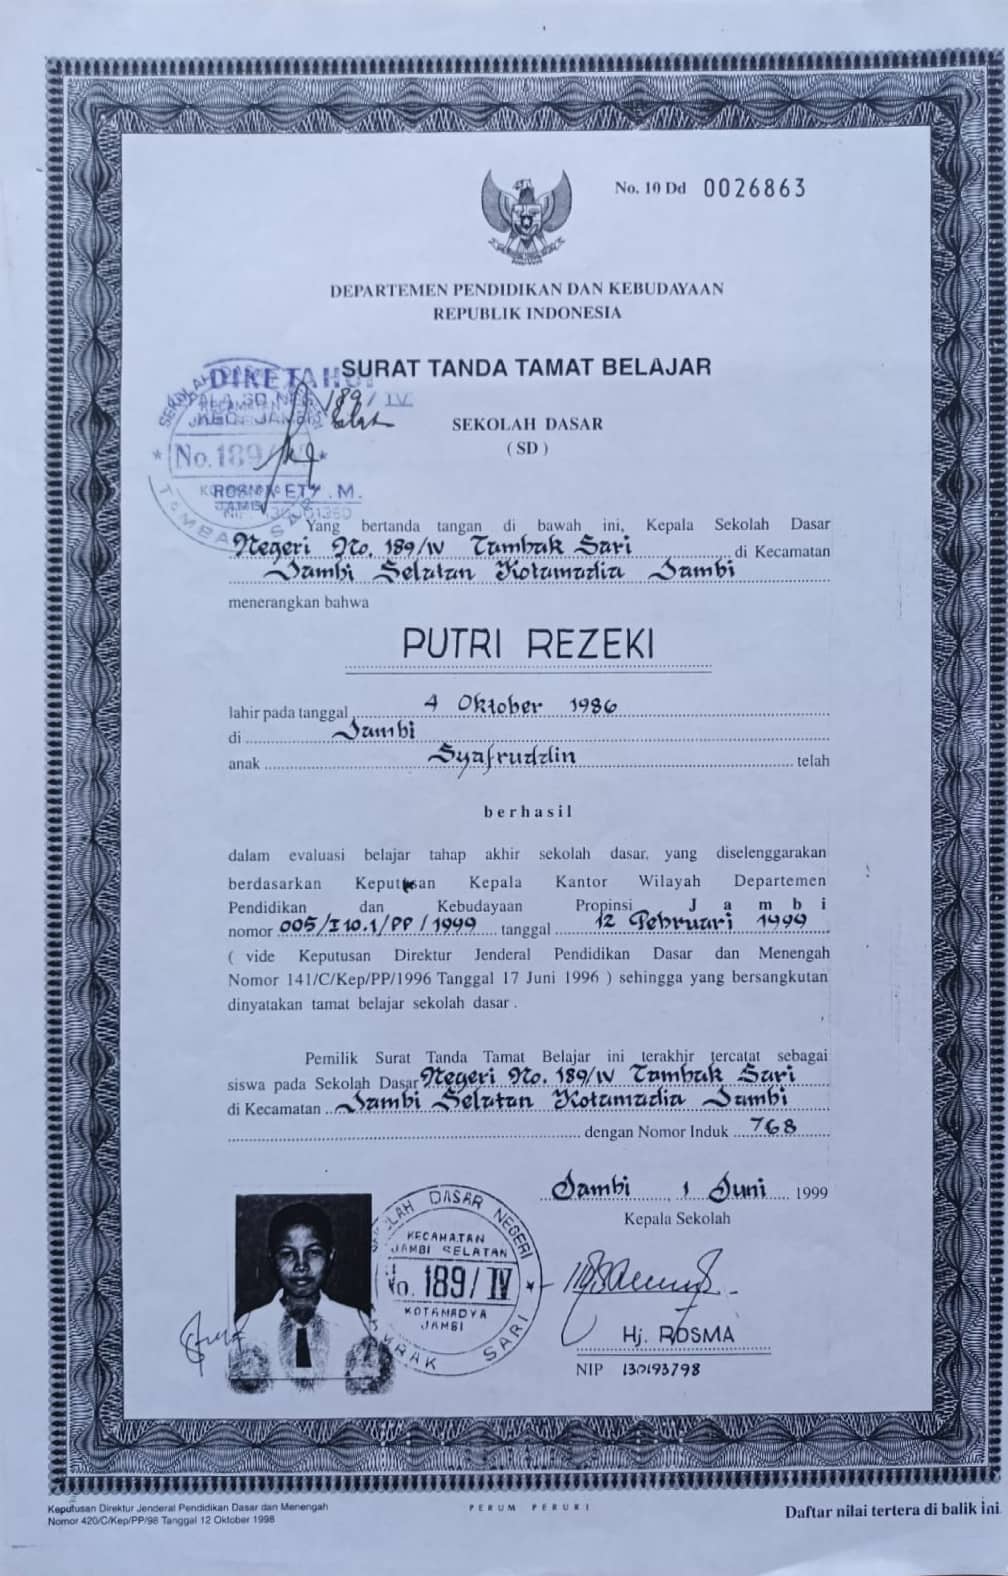 No. 10 Dd 0026863
DEPARTEMEN PENDIDIKAN DAN KEBUDAYAAN
REPUBLIK INDONESIA
SURAT TANDA TAMAT BELAJAR
SEKOLAH DASAR
( SD )
DIKETAHUI
189/IV
No. 189/IV
ROSNA ETY . M.
Yang bertanda tangan di bawah ini, Kepala Sekolah Dasar
Negeri No. 189/IV Tambak Sari di Kecamatan
Jambi Selatan Kotamadia Jambi
menerangkan bahwa
PUTRI REZEKI
lahir pada tanggal 4 Oktober 1986
di Jambi
anak Syafruddin telah
berhasil
dalam evaluasi belajar tahap akhir sekolah dasar, yang diselenggarakan
berdasarkan Keputusan Kepala Kantor Wilayah Departemen
Pendidikan dan Kebudayaan Propinsi Jambi
nomor 005/I10.1/PP/1999 tanggal 12 Pebruari 1999
( vide Keputusan Direktur Jenderal Pendidikan Dasar dan Menengah
Nomor 141/C/Kep/PP/1996 Tanggal 17 Juni 1996 ) sehingga yang bersangkutan
dinyatakan tamat belajar sekolah dasar .
Pemilik Surat Tanda Tamat Belajar ini terakhir tercatat sebagai
siswa pada Sekolah Dasar Negeri No. 189/IV Tambak Sari
di Kecamatan Jambi Selatan Kotamadia Jambi
dengan Nomor Induk 768
Jambi, 1 Juni 1999
Kepala Sekolah
SEKOLAH DASAR NEGERI
KECAMATAN
JAMBI SELATAN
No. 189/IV
KOTAMADYA
JAMBI
TAMBAK SARI
Hj. ROSMA
NIP 130193798
Keputusan Direktur Jenderal Pendidikan Dasar dan Menengah
Nomor 420/C/Kep/PP/98 Tanggal 12 Oktober 1998
PERUM PERURI
Daftar nilai tertera di balik ini